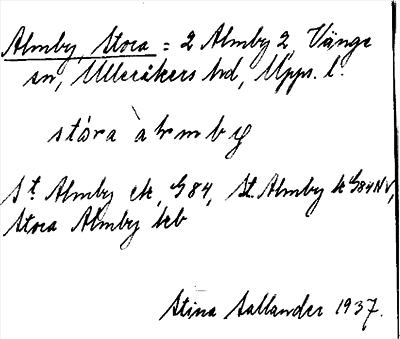 Almby, Stora = 2 Almby 2, Vänge
sn, Ulleråkers hd, Upps. l.
stóra àlmby
St. Almby ek, G 84, St. Almby k G84NV,
Stora Almby hrb
Stina Sallander 1937.